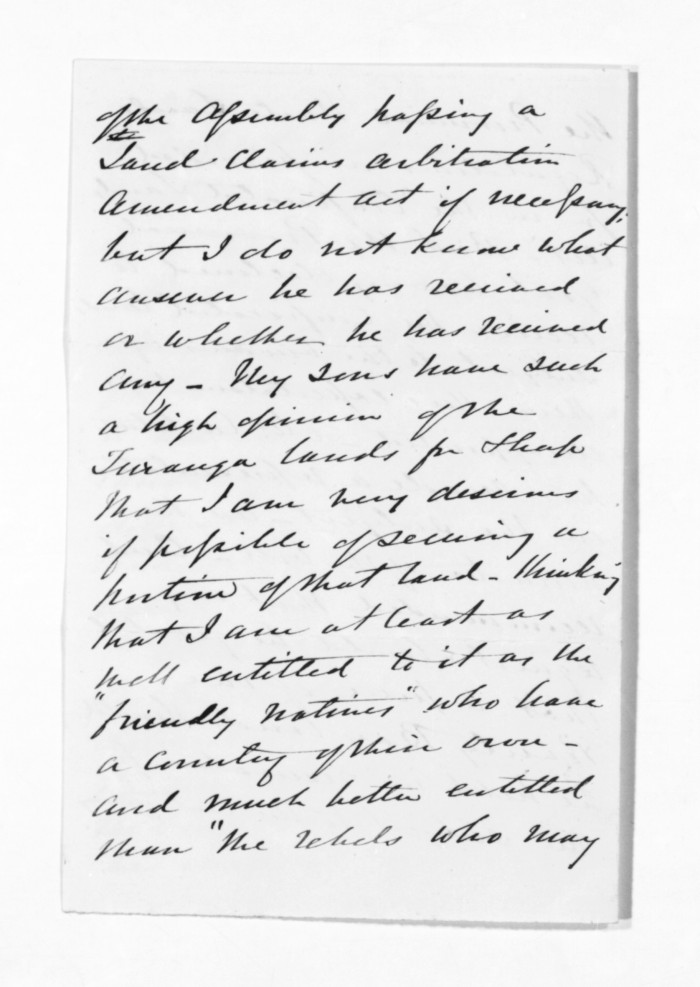 of the Assembly passing a
Land Claims arbitration
Amendment act if necessary,
but I do not know what
answer he has received
or whether he has received
any - My sons have such
a high opinion of the
Turanga lands for Sheep
that I am very desirous
if possible of securing a
portion of that land - thinking
that I am at least as
well entitled to it as the
"friendly natives" who have
a Country of their own -
and much better entitled
than "the rebels who may